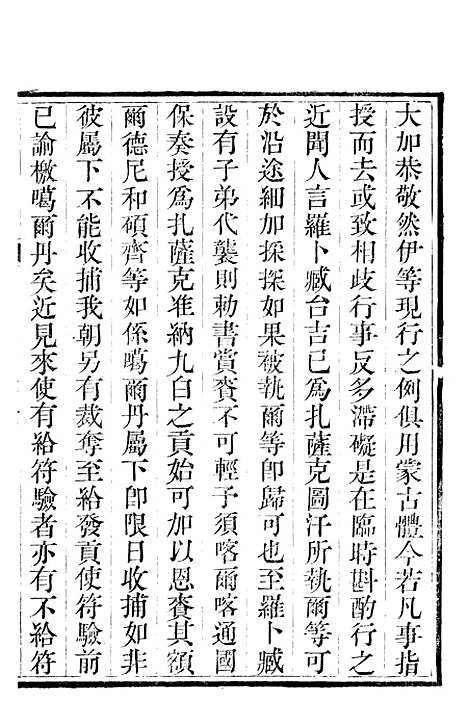 大加恭敬然伊等現行之例俱用蒙古體今若凡事指
授而去或致相歧行事反多滯礙是在臨時斟酌行之
近聞人言羅卜臧台吉已爲扎薩克圖汗所執爾等可
於沿途細加採探如果被執爾等卽歸可也至羅卜臧
設有子弟代襲則勅書賞賚不可輕予須喀爾喀通國
保奏授爲扎薩克准納九白之貢始可加以恩賚其額
爾德尼和碩齊等如係噶爾丹屬下卽限日收捕如非
彼屬下不能收捕我朝另有裁奪至給發貢使符驗前
已諭檄噶爾丹矣近見來使有給符驗者亦有不給符